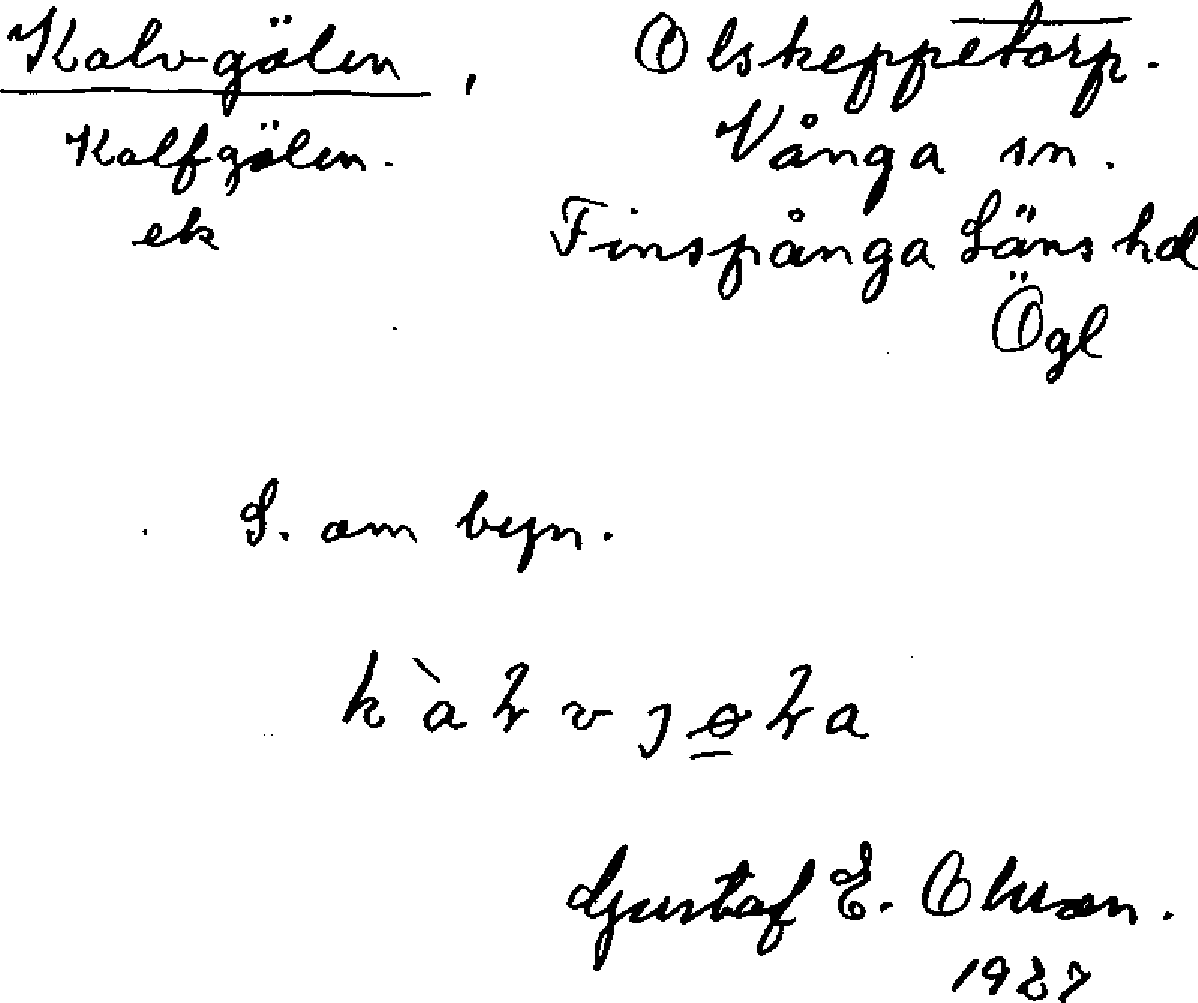 Kalvgölen, Olskeppetorp.
Kalfgölen. Vånga sn.
ek Finspånga Läns hd
Ögl
S. om byn.
Gustaf E. Ohlson.
1927